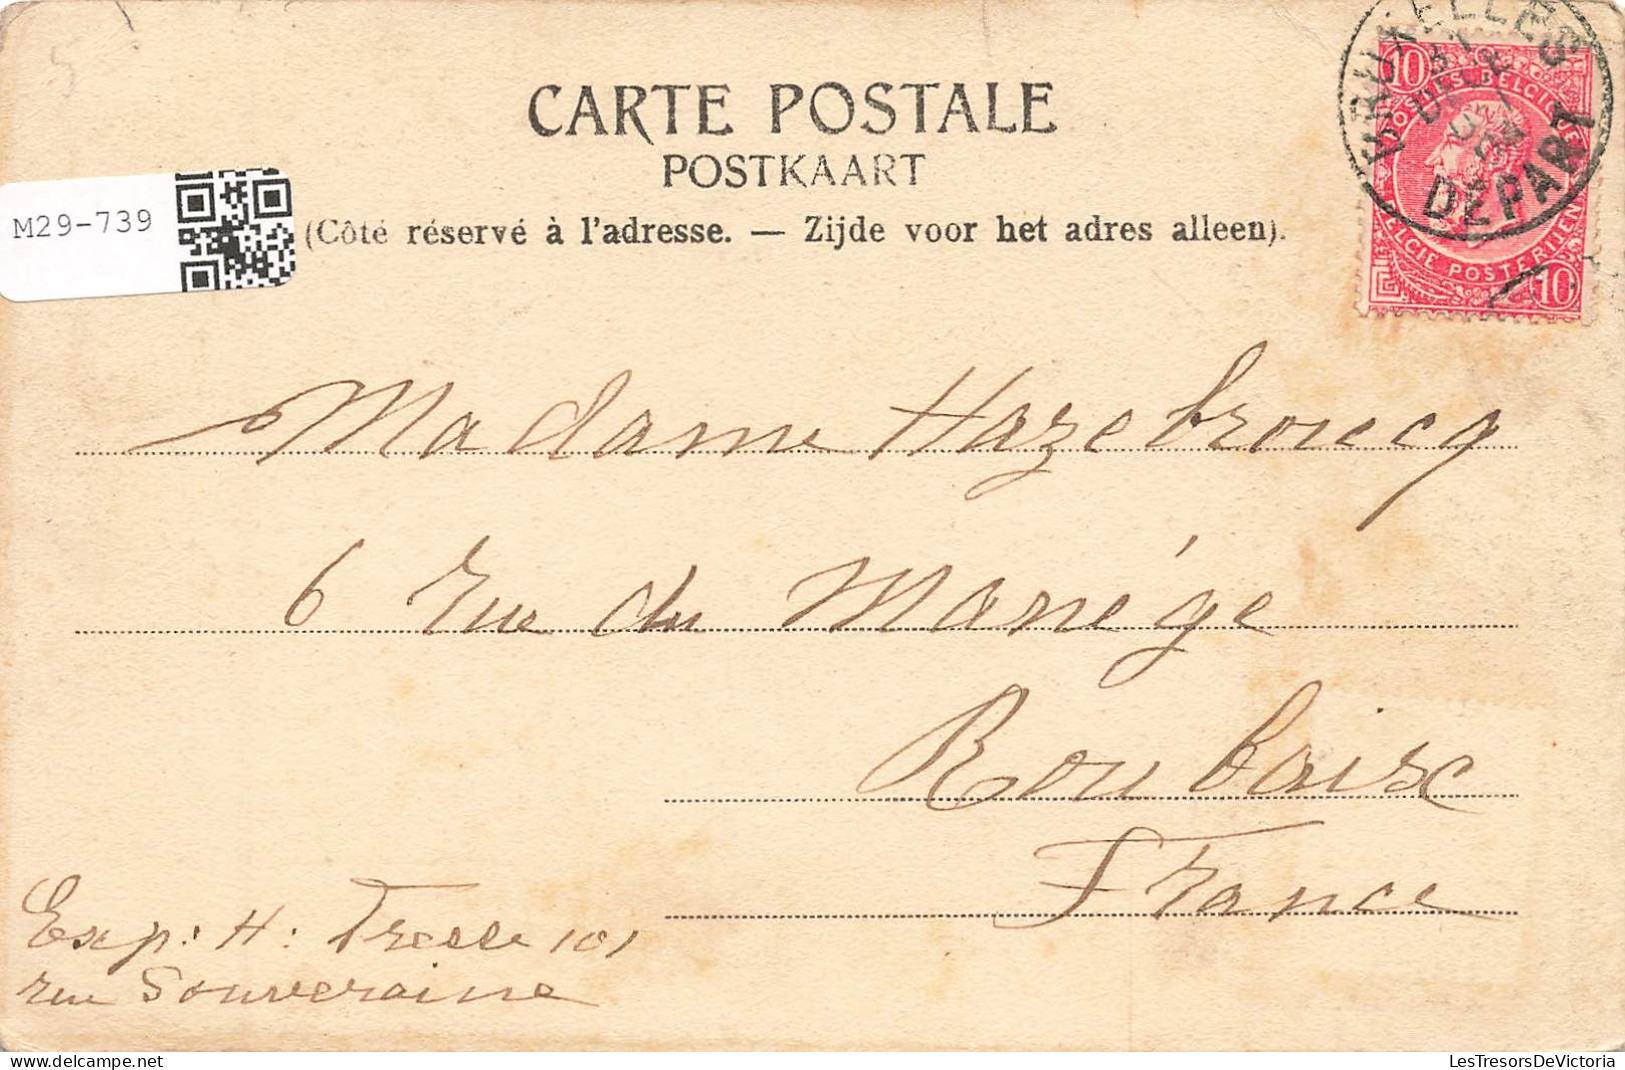 CARTE POSTALE
POSTKAART
M29-739
(Côté réservé à l'adresse. — Zijde voor het adres alleen).
BRUXELLES
DEPART
10
POSTES BELGIQUE
BELGIE POSTERIJEN
10
Madame Hazebroucq
6 rue du Manége
Roubaix
France
Exp: H: Tresse 101
rue Souveraine
5
LesTresorsDeVictoria